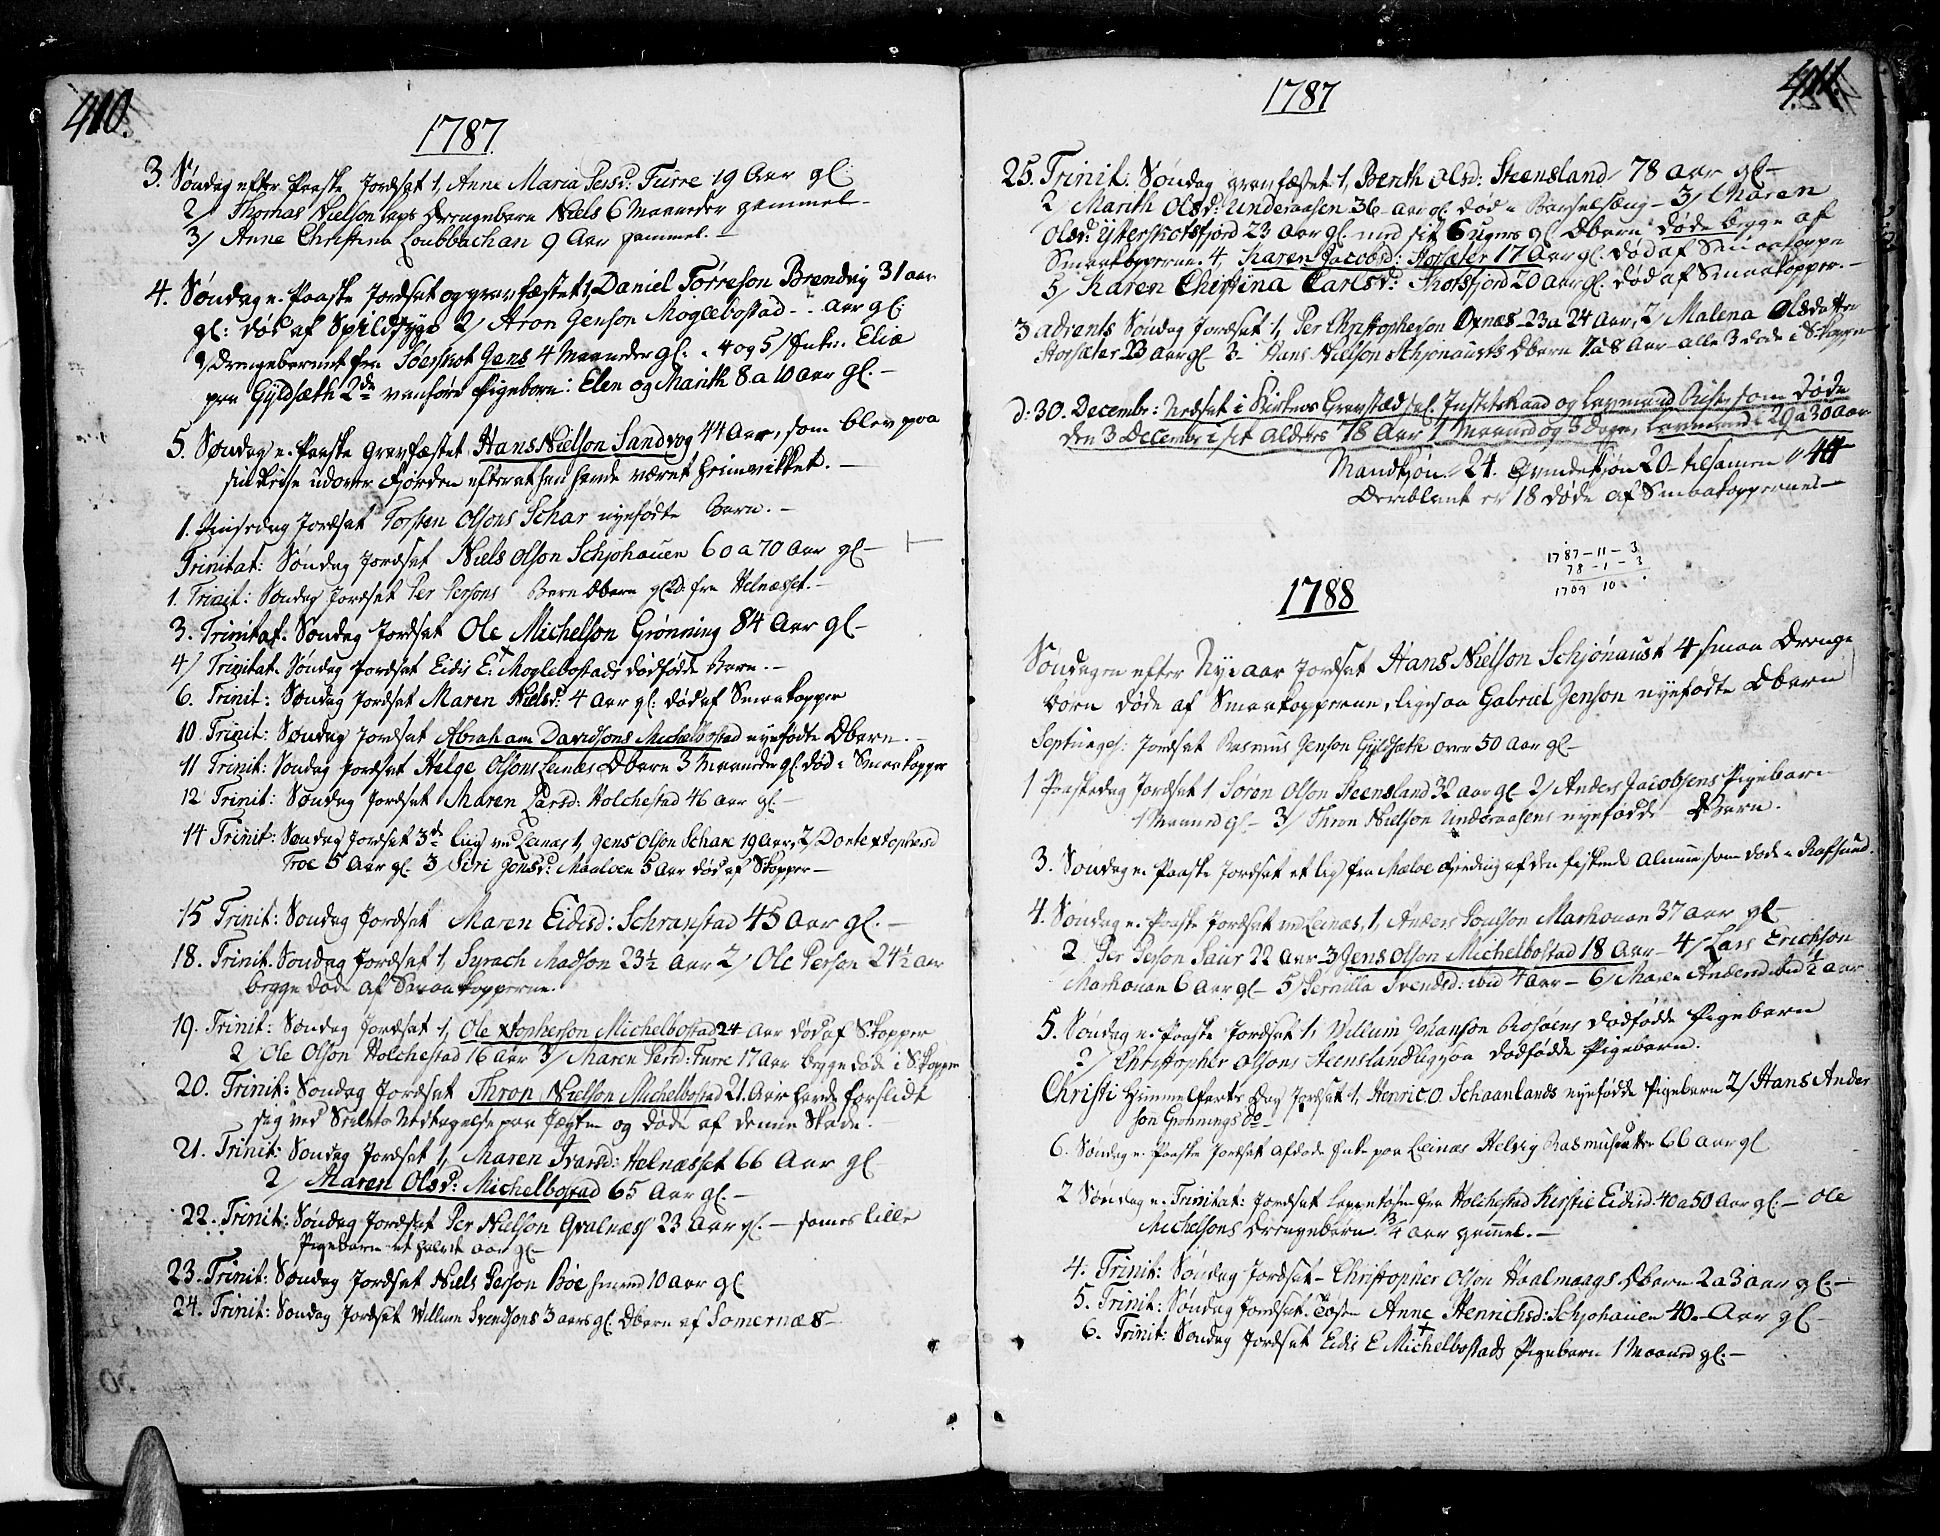 410.
1787
3. Søndag efter Paaske Jordsat 1, Anne Maria Persd: Furre 19 Aar gl.
2/ Thomas Nielson Laps Drengebarn Niels 6 Maaneder gammel –
3/ Anne Christina Loubbachan 9 Aar gammel. –
4. Søndag e. Paaske Jordsat og gravfæstet 1, Daniel Torreson Brendvig 31 aar
gl: død af Spildsyge 2/ Aron Jenson Moglebostad - - aar gl:
3/ Drengebarnet fra Sørskot Jens 4 Maaneder gl: . 4 og 5/ Enke. Eliæ
paa Gyldsæth 2de vanføre Pigebørn: Elen og Marith 8 a 10 aar gl. –
5. Søndag e. Paaske Gravfæstet Hans Nielson Sandvog 44 Aar, som blev paa
sin Reise udover Fjorden efterat han havde været
1. Pinsedag Jordsat Torsten Olsons Schar nyefødte Barn. –
Trinitat: Søndag Jordsat Niels Olson Schjohauen 60 a 70 Aar gl –
1. Trinit: Søndag Jordsat Per Persons Barn Dbarn fra Helnæsset. –
3. Trinitat. Søndag Jordsat Ole Michelson Grønning 84 Aar gl –
4/ Trinitat. Søndag Jordsat Eidis E. Moglebostads dødfødde Barn. –
6. Trinit: Søndag Jordsat Maren Nielsd: 4 Aar gl: død af Smaakopper
10. Trinit: Søndag Jordsat Abraham Davidsons Michelbostad nyefødte Dbarn. –
11 Trinit: Søndag Jordsat Helge Olsons Leinæs Dbarn 3 Maaneder gl: død i Smaakopper
12 Trinit: Søndag Jordsat Maren Larsd: Holchestad 46 aar gl –
14 Trinit: Søndag Jordsat 3de Liig ved Leinæs 1, Jens Olson Schare 19 Aar, 2/ Dorte Xstophersd
Troe 5 Aar gl. 3/ Siri Jonsd: Maaloen 5 aar død af Skopper –
15 Trinit: Søndag Jordsat Maren Eidisd: Schranstad 45 Aar gl. –
18. Trinit. Søndag Jordsat 1, Syrach Madson 23½ Aar 2/ Ole Person 24½ aar
begge døde af Smaakopperne.
19. Trinit: Søndag Jordsat 1, Ole Xstopherson Michelbostad 24 Aar død af Skopper
2 Ole Olson Holchestad 16 Aar 3/ Maren Larsd: Furre 17 Aar begge døde i Skopper
20. Trinit: Søndag Jordsat Thron Nielson Michelbostad 21. Aar havde forslidt
sig ved Seilets Nedtagelse paa Jægten og døde af denne Skade. –
21. Trinit: Søndag Jordsat 1, Maren Ivarsd: Helnæsset 66 Aar gl
2/ Maren Olsd: Michelbostad 65 Aar gl. –
22. Trinit: Søndag Jordsat Per Nielson Qvalnæss 23 Aar gl. – sames lille
Pigebarn et halvt aar gl –
23. Trinit: Søndag Jordsat Niels Person Bøe henved 10 aar gl
24. Trinit: Søndag Jordsat Villum Svendsons 3 aars gl. Dbarn af Somernæs –
411.
1787
25. Trinit: Søndag gravfæstet 1, Berith Olsd: Steensland 78 aar gl –
2/ Marith Olsd: Underaasen 36 aar gl. død i Barselsæng – 3/ Maren
Olsd: Ytterskotsfjord 23 Aar gl. med sit 6 ugers gl Dbarn døde begge af
Smaakopperne. 4 Karen Jacobsd: Storsæter 17 Aar gl. død af Smaakoppe
5/ Karen Christina Carlsd: Skotsfjord 20 aar gl. død af Smaakopper. –
3 advents Søndag Jordsat 1, Per Christopherson Oxnæs 23 a 24 Aar, 2/ Malena Olsdatter
Storsæter 23 aar gl – 3 – Hans Nielson Schjonausts Dbarn 7 a 8 Aar – alle 3 døde i Skopper
d: 30. Decembr: Nedsat i Kirkens Gravstæd sal. Justitsraad og Lavmand Riist som døde
den 3 Decembr i sit Alders 78 Aar 1 Maaned og 3 Dage, Lavmand i 29 a 30 aar
Mandkjøn 24. Qvindekjøn 20 – tilsamen 44
Deriblant er 18 døde af Smaakopperne –
1787 – 11 – 3
78 – 1 – 3
1709 10 .
1788
Søndagen efter Nyt aar Jordsat Hans Nielson Schjonaust 4 smaa Drenge
børn døde af Smaakopperne, ligesaa Gabriel Jenson nyefødte Dbarn
Septuages: Jordsat Rasmus Jenson Gyldsæth over 50 Aar gl –
1 Paaskedag Jordsat 1 Søren Olson Steensland 32 aar gl – 2/ Anders Jacobsens Pigebarn
1 Maaned gl – 3/ Thron Nielson Underaasens nyefødde Dbarn.
3. Søndag e. Paaske Jordsat et Lig fra Meløe Fjerding af den fiskende Almue som døde i Rafsund.
4. Søndag e. Paaske Jordsat ved Leinæs, 1, Anders Poulson Markonan 37 aar gl –
2 Per Person Saur 22 Aar – 3 Jens Olson Michelbostad 18 Aar – 4/ Lars Erickson
Markonan 6 Aar gl – 5/ Pernilla Svendsd: ibid 4 aar – 6/ Maren Andersd ibid ½ aar
5. Søndag e. Paaske Jordsat 1, Villum Johanson Rosøens dødfødde Pigebarn
2/ Christopher Olsons Steensland ligesaa dødfødde Pigebarn.
Christi Himmelfarts Dag Jordsat 1, Henric O. Schaanlands nyefødde Pigebarn 2/ Hans Ander
son Grønnings Do –
6. Søndag e. Paaske Jordsat afdøde Enke paa Leinæs Helvig Rasmusdatter 66 aar gl
2 Søndag e. Trinitat: Jordsat Lappetøsen fra Holchestad Kirstie Eidisd: 40 a 50 Aar gl: – Ole
Michelsons Drengebarn ¾ aar gammel. –
4. Trinit: Søndag Jordsat – Christopher Olson Haalmaags Dbarn 2 a 3 aar gl: –
5. Trinit: Søndag Jordsat Tøsen Anne Henrichsd: Schjohauen 40. Aar gl –
6. Trinit: Søndag Jordsat Eidis E Michelbostads Pigebarn 1 Maaned gl. –